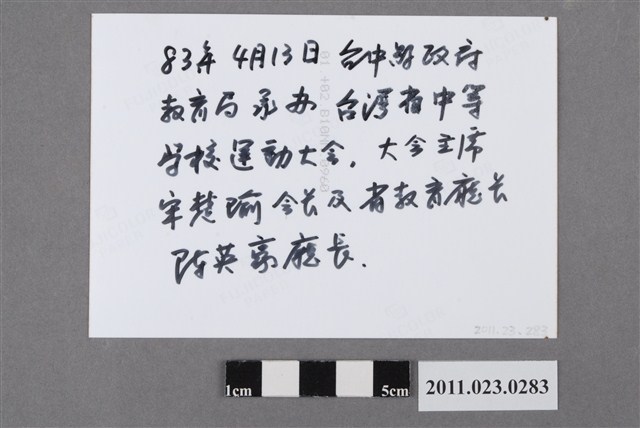 83年4月13日 台中縣政府
教育局承办 台湾省中等
学校運動大会。大会主席
宋楚瑜会長及省教育廳長
陈英豪廳長.
2011.23.283
1cm 5cm 2011.023.0283